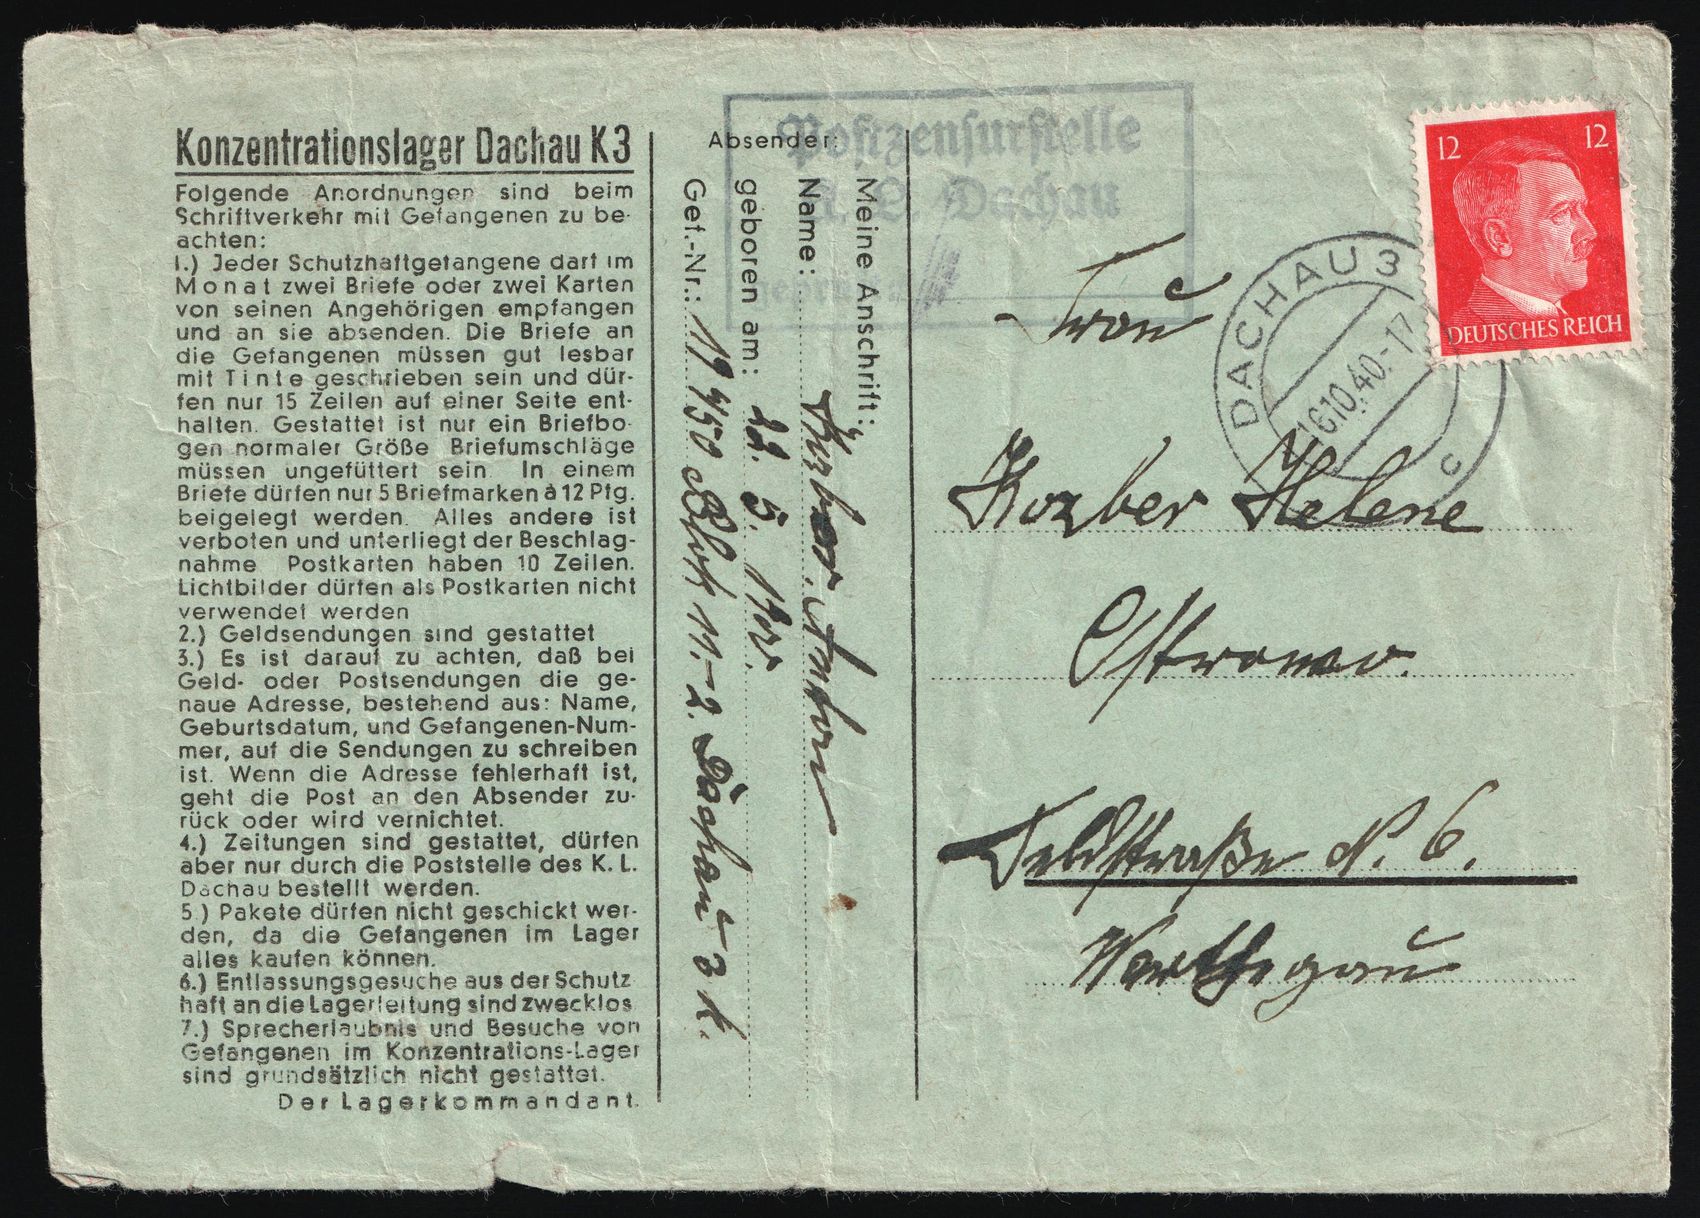 Konzentrationslager Dachau K3
Folgende Anordnungen sind beim
Schriftverkehr mit Gefangenen zu be-
achten:
1.) Jeder Schutzhaftgefangene darf im
Monat zwei Briefe oder zwei Karten
von seinen Angehörigen empfangen
und an sie absenden. Die Briefe an
die Gefangenen müssen gut lesbar
mit Tinte geschrieben sein und dür-
fen nur 15 Zeilen auf einer Seite ent-
halten. Gestattet ist nur ein Briefbo-
gen normaler Größe Briefumschläge
müssen ungefüttert sein. In einem
Briefe dürfen nur 5 Briefmarken à 12 Pfg.
beigelegt werden. Alles andere ist
verboten und unterliegt der Beschlag-
nahme Postkarten haben 10 Zeilen.
Lichtbilder dürfen als Postkarten nicht
verwendet werden
2.) Geldsendungen sind gestattet
3.) Es ist darauf zu achten, daß bei
Geld- oder Postsendungen die ge-
naue Adresse, bestehend aus: Name,
Geburtsdatum, und Gefangenen-Num-
mer, auf die Sendungen zu schreiben
ist. Wenn die Adresse fehlerhaft ist,
geht die Post an den Absender zu-
rück oder wird vernichtet.
4.) Zeitungen sind gestattet, dürfen
aber nur durch die Poststelle des K. L.
Dachau bestellt werden.
5.) Pakete dürfen nicht geschickt wer-
den, da die Gefangenen im Lager
alles kaufen können.
6.) Entlassungsgesuche aus der Schutz
haft an die Lagerleitung sind zwecklos
7.) Sprecherlaubnis und Besuche von
Gefangenen im Konzentrations-Lager
sind grundsätzlich nicht gestattet.
Der Lagerkommandant.
Absender:
Meine Anschrift:
Name: Anton
geboren am: 22. 5.
Gef.-Nr.: 19450 Block 11.-2. Dachau 3 K.
Postzensurstelle
K. L. Dachau
geprüft
12 12
DEUTSCHES REICH
DACHAU 3
10.40.-17
c
Frau
Korzber Helene
Ostrowo.
Feldstraße N. 6.
Warthegau